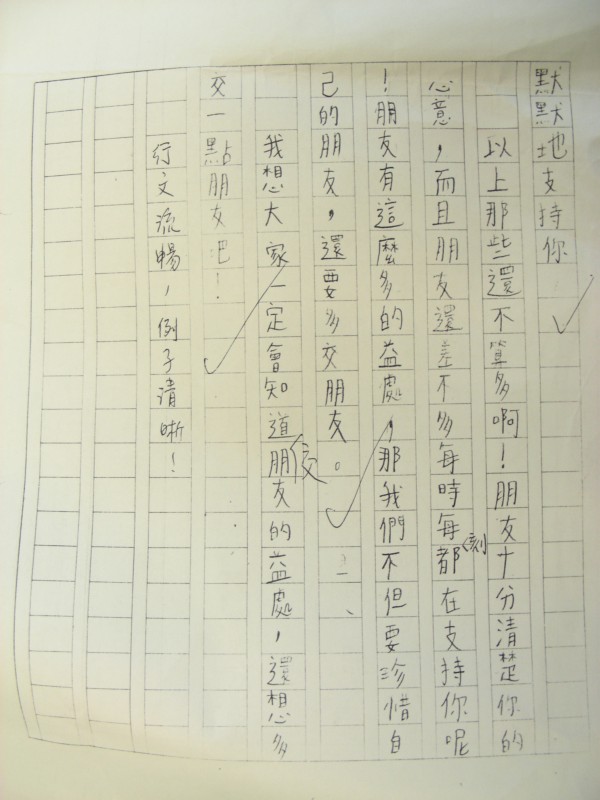 默默地支持你
以上那些還不算多啊！朋友十分清楚你的
心意，而且朋友還差不多每時每刻都在支持你呢
！朋友有這麼多的益處，那我們不但要珍惜自
己的朋友，還要多交朋友。
我想大家一定會知道朋友的益處，還想多
交一點朋友吧！
行文流暢，例子清晰！